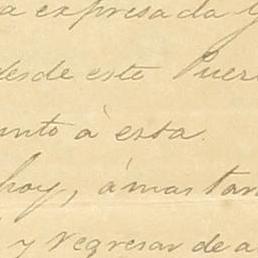 a expresada y
desde este Puer
unto à esta.
hoy, ámas tar
y regresar de a